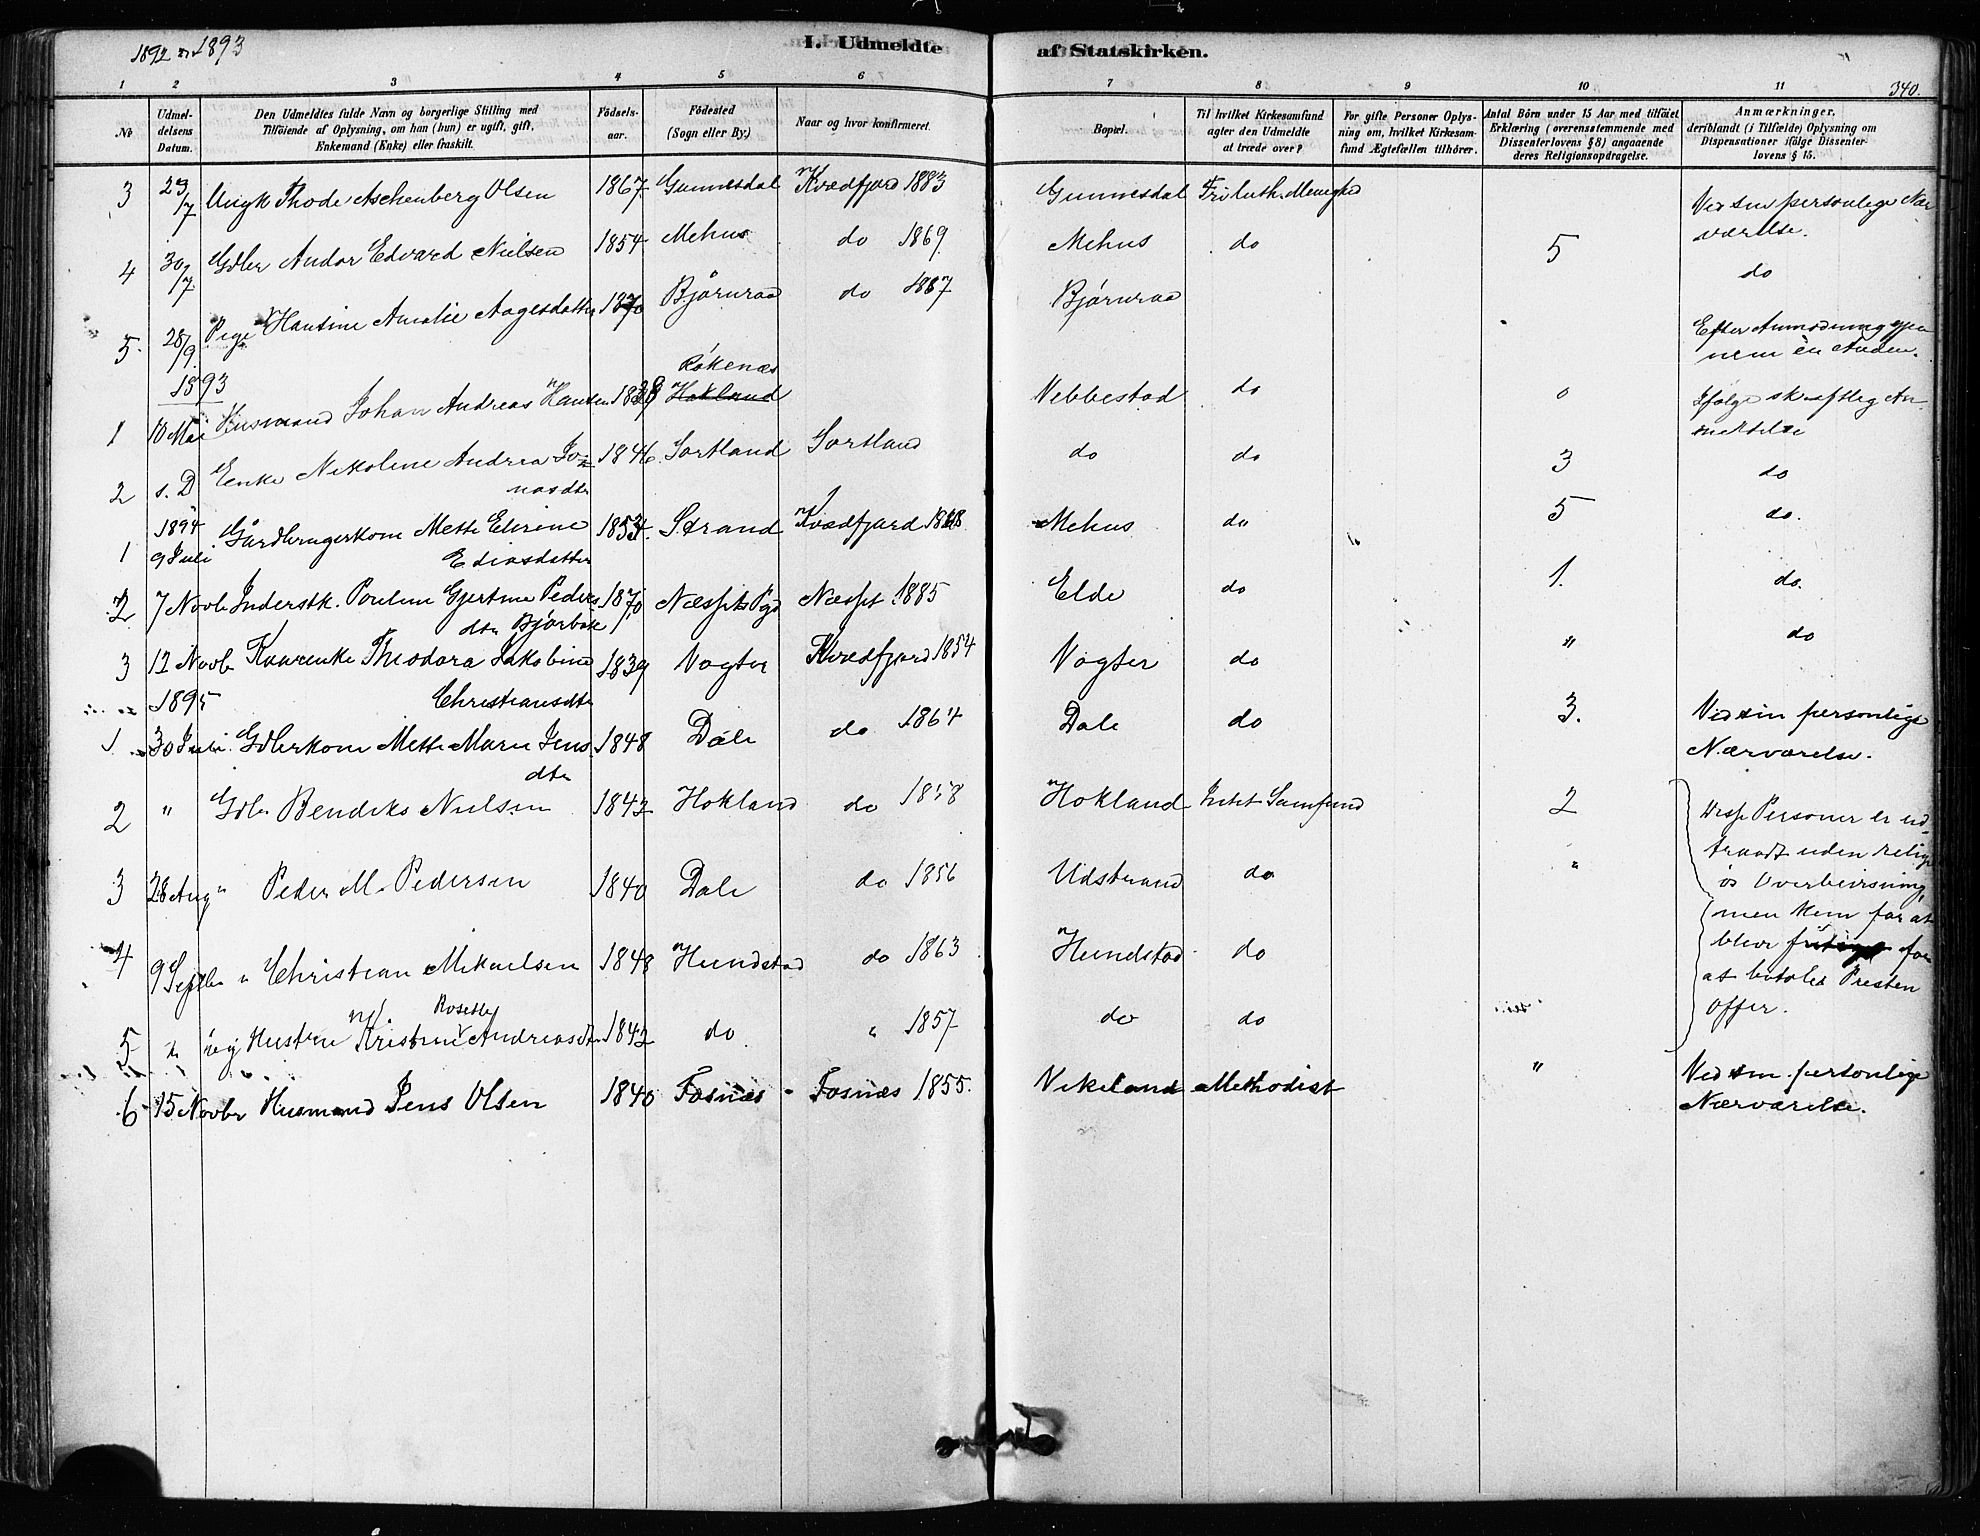 1892 – 1893
I. Udmeldte af Statskirken.
340.
1 2 3 4 5 6 7 8 9 10 11
No
Udmel-
delsens
Datum.
Den Udmeldtes fulde Navn og borgerlige Stilling med
Tilføiende af Oplysning, om han (hun) er ugift, gift,
Enkemand (Enke) eller fraskilt.
Fødsels-
aar.
Fødested
(Sogn eller By.)
Naar og hvor konfirmeret.
Bopæl.
Til hvilket Kirkesamfund
agter den Udmeldte
at træde over?
For gifte Personer Oplys-
ning om, hvilket Kirkesam-
fund Ægtefællen tilhører.
Antal Børn under 15 Aar med tilføiet
Erklæring (overensstemmende med
Dissenterlovens § 8) angaaende
deres Religionsopdragelse.
Anmærkninger,
deriblandt (i Tilfælde) Oplysning om
Dispensationer ifølge Dissenter-
lovens § 15.
3 29/7 Ungk Thode Aschenberg Olsen 1867 Gunnesdal Kvædfjord 1883 Gunnesdal Fri luth. Menighed Ved sin personlige Nær
værelse.
4 30/7 Gdbr Andor Edvard Nielsen 1854 Mehus do 1869 Mehus do 5 do
5 28/9 Pige Hansine Amalie Aagesdatter 1870 Bjørnraa do 1887 Bjørnraa Efter Anmodning gjen
nem en Anden.
1893
1 10 Mai Husmand Johan Andreas Hansen 1838 Røkenæs Hokland Nebbestad do 0 Ifølge skriftlig An
meldelse
2 s. D Enke Nikoline Andrea Jo-
nasdtr 1846 Sortland Sortland do do 3 do
1894
1 9 Juli Gårdbrugerkone Mette Elirine
Ediasdatter 1854 Strand Kvædfjord 1868 Mehus do 5 do.
2 7 Novb Inderstk. Pouline Gjertine Peders
dtr Bjørbæk 1870 Næssets Pgd Næsset 1885 Elde do 1. do.
3 12 Novb Kaarenke Theodora Jakobine
Christiansdtr 1839 Vogter Kvædfjord 1854 Vogter do " do
1895
1 30 Juli Gdbrkone Mette Marie Jens
dtr 1848 Dale do 1864 Dale do 3. Ved sin personlige
Nærværelse.
2 " Gdbr Bendiks Nielsen 1842 Hokland do 1858 Hokland Intet Samfund 2
3 28 Aug " Peder M. Pedersen 1840 Dale do 1856 Udstrand do "
4 9 Septbr " Christian Mikaelsen 1848 Hundstad do 1863 Hundstad do
5 " Hustru Kristine Rosette Andreasdtr 1842 do " 1857 do do
Disse Personer er ud-
traadt uden religi
øs Overbevisning,
men kun for at
blive for
at betale Presten
Offer.
6 15 Novbr Husmand Jens Olsen 1840 Fosnæs - Fosnæs 1855. Vikeland Methodist " Ved sin personlige
Nærværelse.